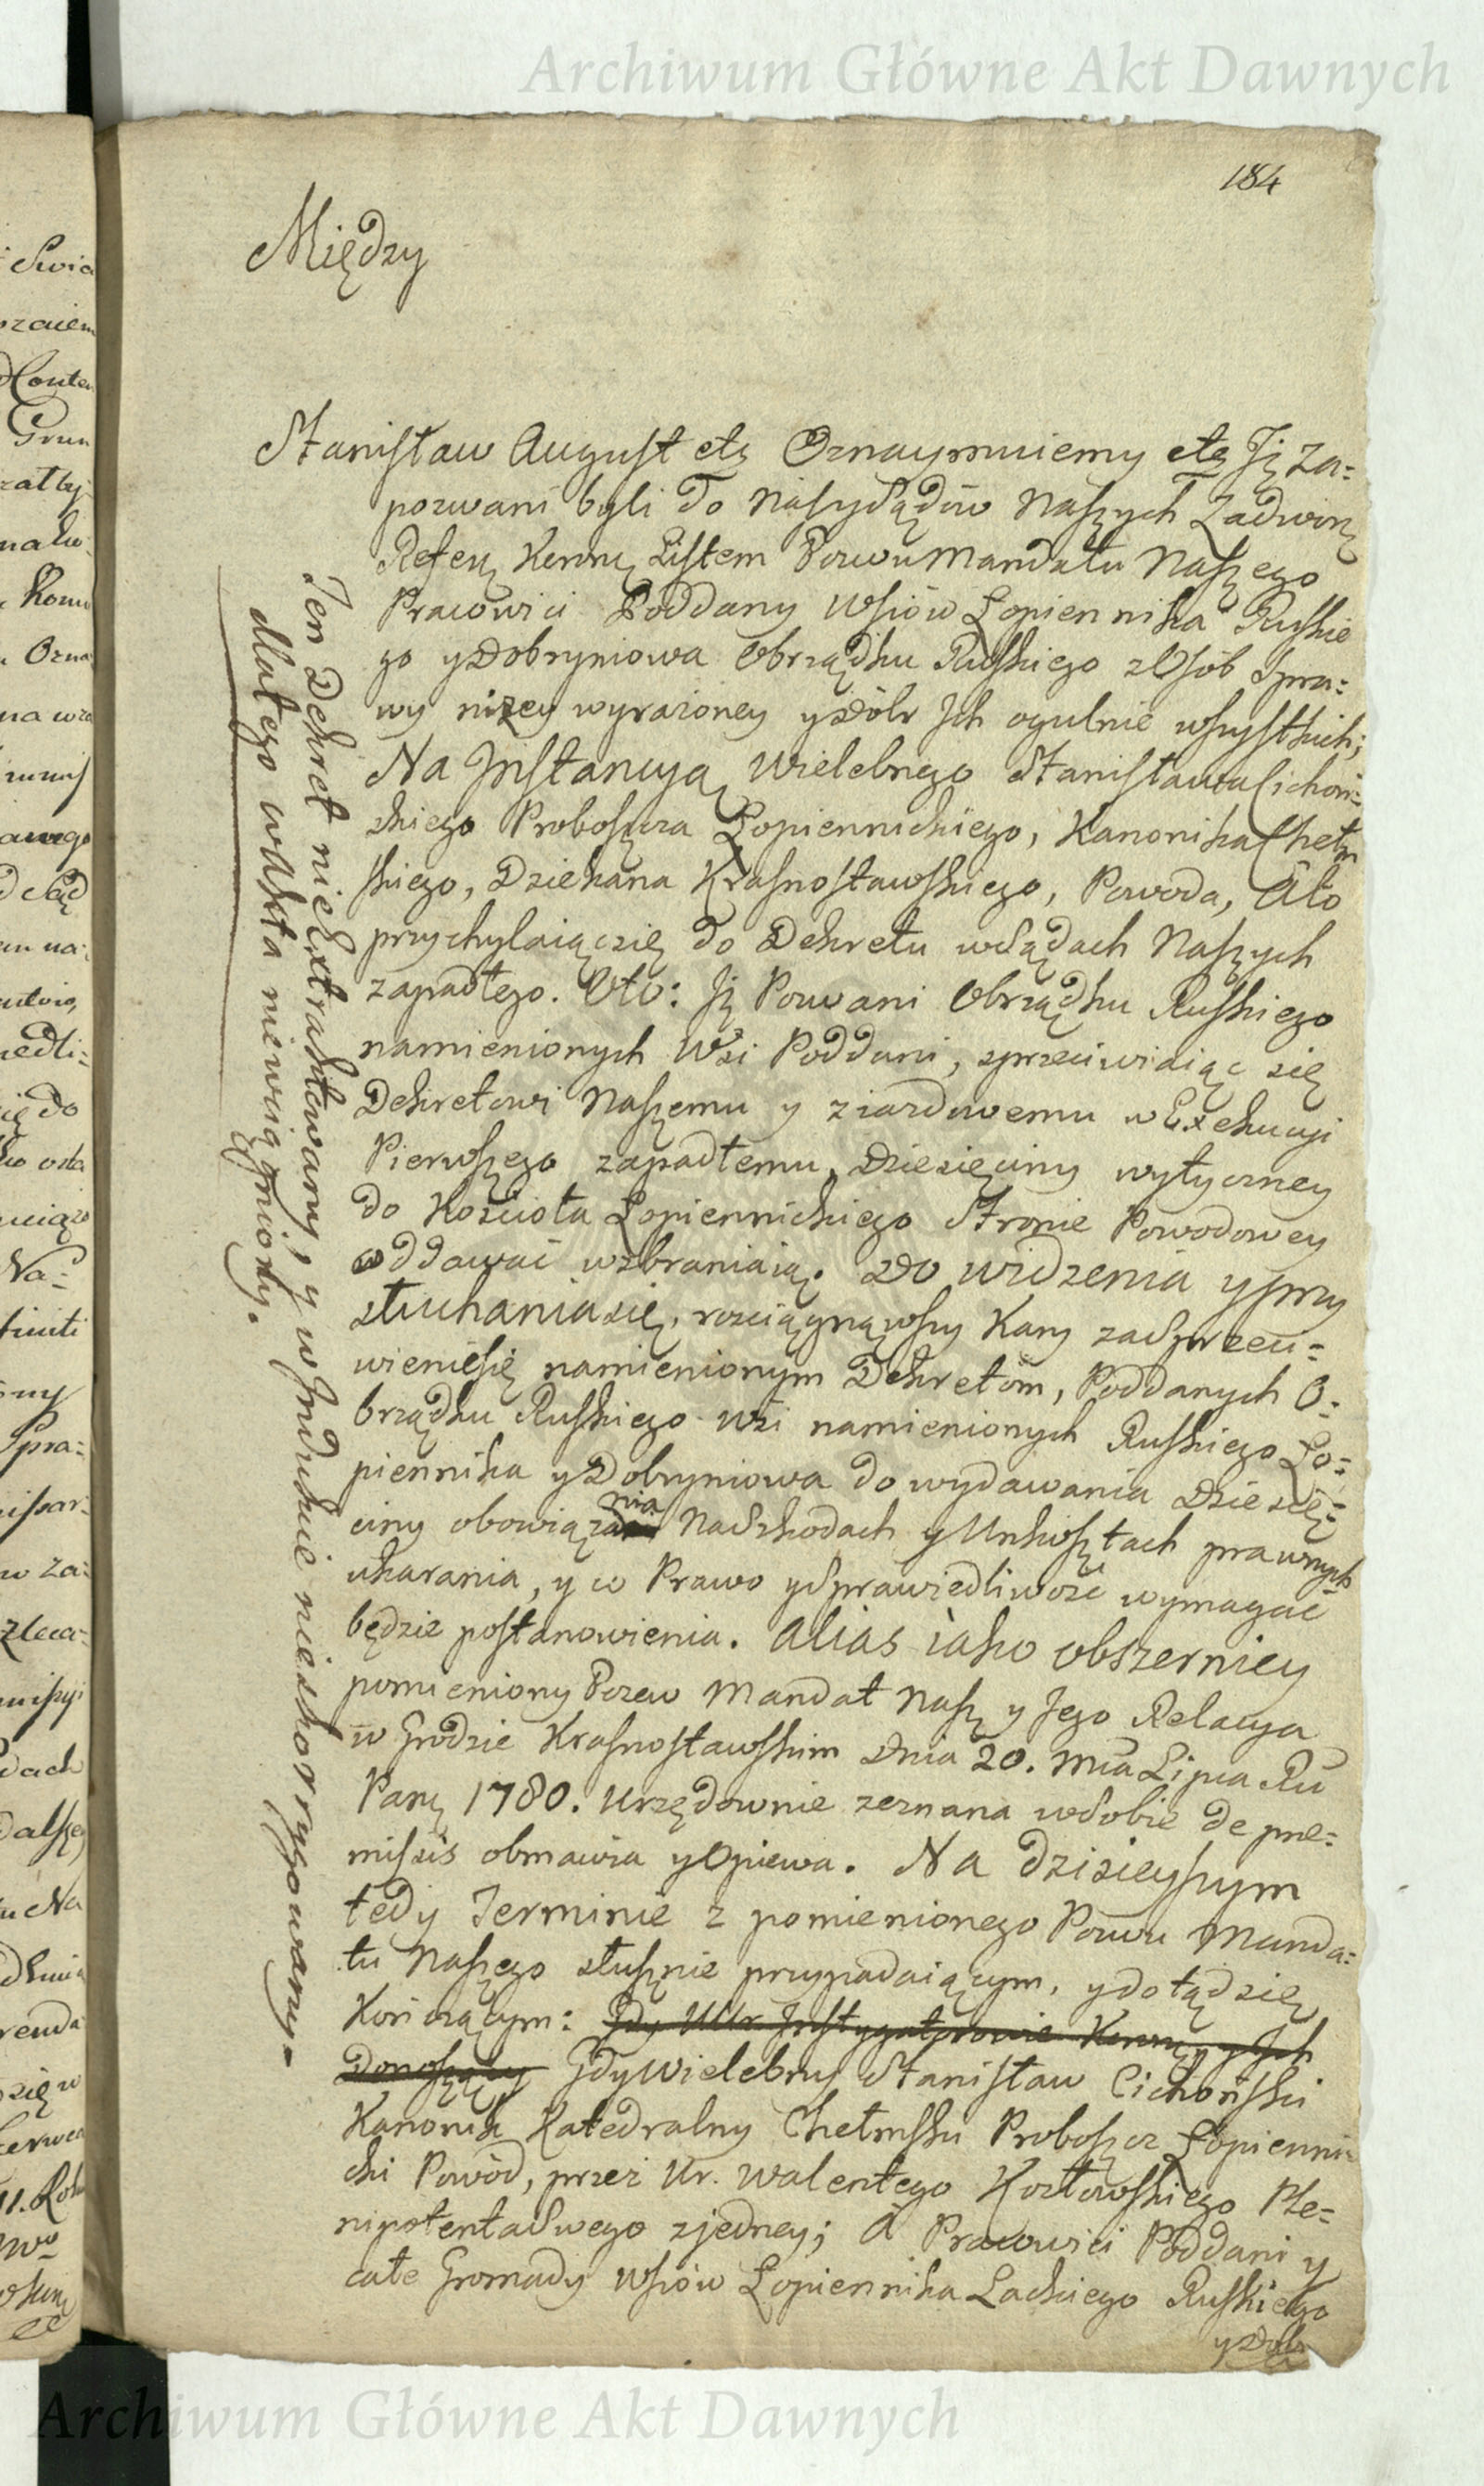 Archiwum Główne Akt Dawnych
184
Między
Stanisław August etc Oznaymuiemy etc Iż za=
pozwani byli do Nas y Sądów Naszych Zadwor:
Refer: Koron: Listem Pozwu Mandatu Naszego
Pracowici Poddany Wsiów Łopiennika Ruskie
go y Dobryniowa Obrządku Ruskiego z Osób Spra=
wy niżey wyrażoney y Dóbr Ich ogulnie wszystkich;
Na Instancyą Wielebnego Stanisława Cichoń=
skiego Proboszcza Łopiennickiego, Kanonika Chełm
skiego, Dziekana Krasnostawskiego, Powoda, A to
przychylaiąc się do Dekretu w Sądach Naszych
zapadłego. Oto: Iż Pozwani Obrządku Ruskiego
namienionych Wsi Poddani, sprzeciwiaiąc się
Dekretowi Naszemu y ziazdowemu w Exekucyi
Pierwszego zapadłemu, Dziesięciny wytyczney
do Kościoła Łopiennickiego Stronie Powodowey
oddawać wzbraniaią. Do widzenia y przy
słuchania się, rościągnąwszy Kary za Sprzeci=
wienie się namienionym Dekretom, Poddanych O=
brządku Ruskiego wsi namienionych Ruskiego Ło=
piennika y Dobryniowa do wydawania Dziesię=
ciny obowiązania Na Szkodach y Unkosztach prawnych
ukarania, y co Prawo y Sprawiedliwość wymagać
będzie postanowienia. Alias iako obszerniey
pomieniony Pozew Mandat Nasz y Jego Relacya
w Grodzie Krasnostawskim Dnia 20. Mca Lipca Ru
Pań: 1780. Urzędownie zeznana w Sobie de prae=
missis obmawia y Opiewa. Na dzisieyszym
tedy Terminie z pomienionego Pozwu Manda=
tu Naszego słusznie przypadaiącym, y dotąd się
Kończącym: Gdy Uur Instygatorowie Koronny y Ich
Donoszący Gdy Wielebny Stanisław Cichoński
Kanonik Katedralny Chełmski Proboszcz Łopienni
cki Powód, przez Ur. Walentego Kozłowskiego Ple=
nipotenta Swego z jedney; A Pracowici Poddani y
całe Gromady Wsiów Łopiennika Lackiego Ruskiego
y Dobr
Ten Dekret nie Extraktowany, y w Indukcie nieskorrygowany.
dla tego w Akta niewciągniony.
Archiwum Główne Akt Dawnych